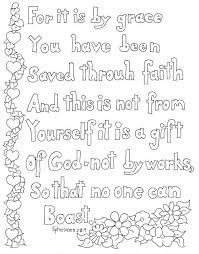 For it is by grace
You have been
Saved throuh faith
And this is not from
Yourself it is a gift
Of God-not by works,
So that no one can
Boast.
Ephesians 2:8-9